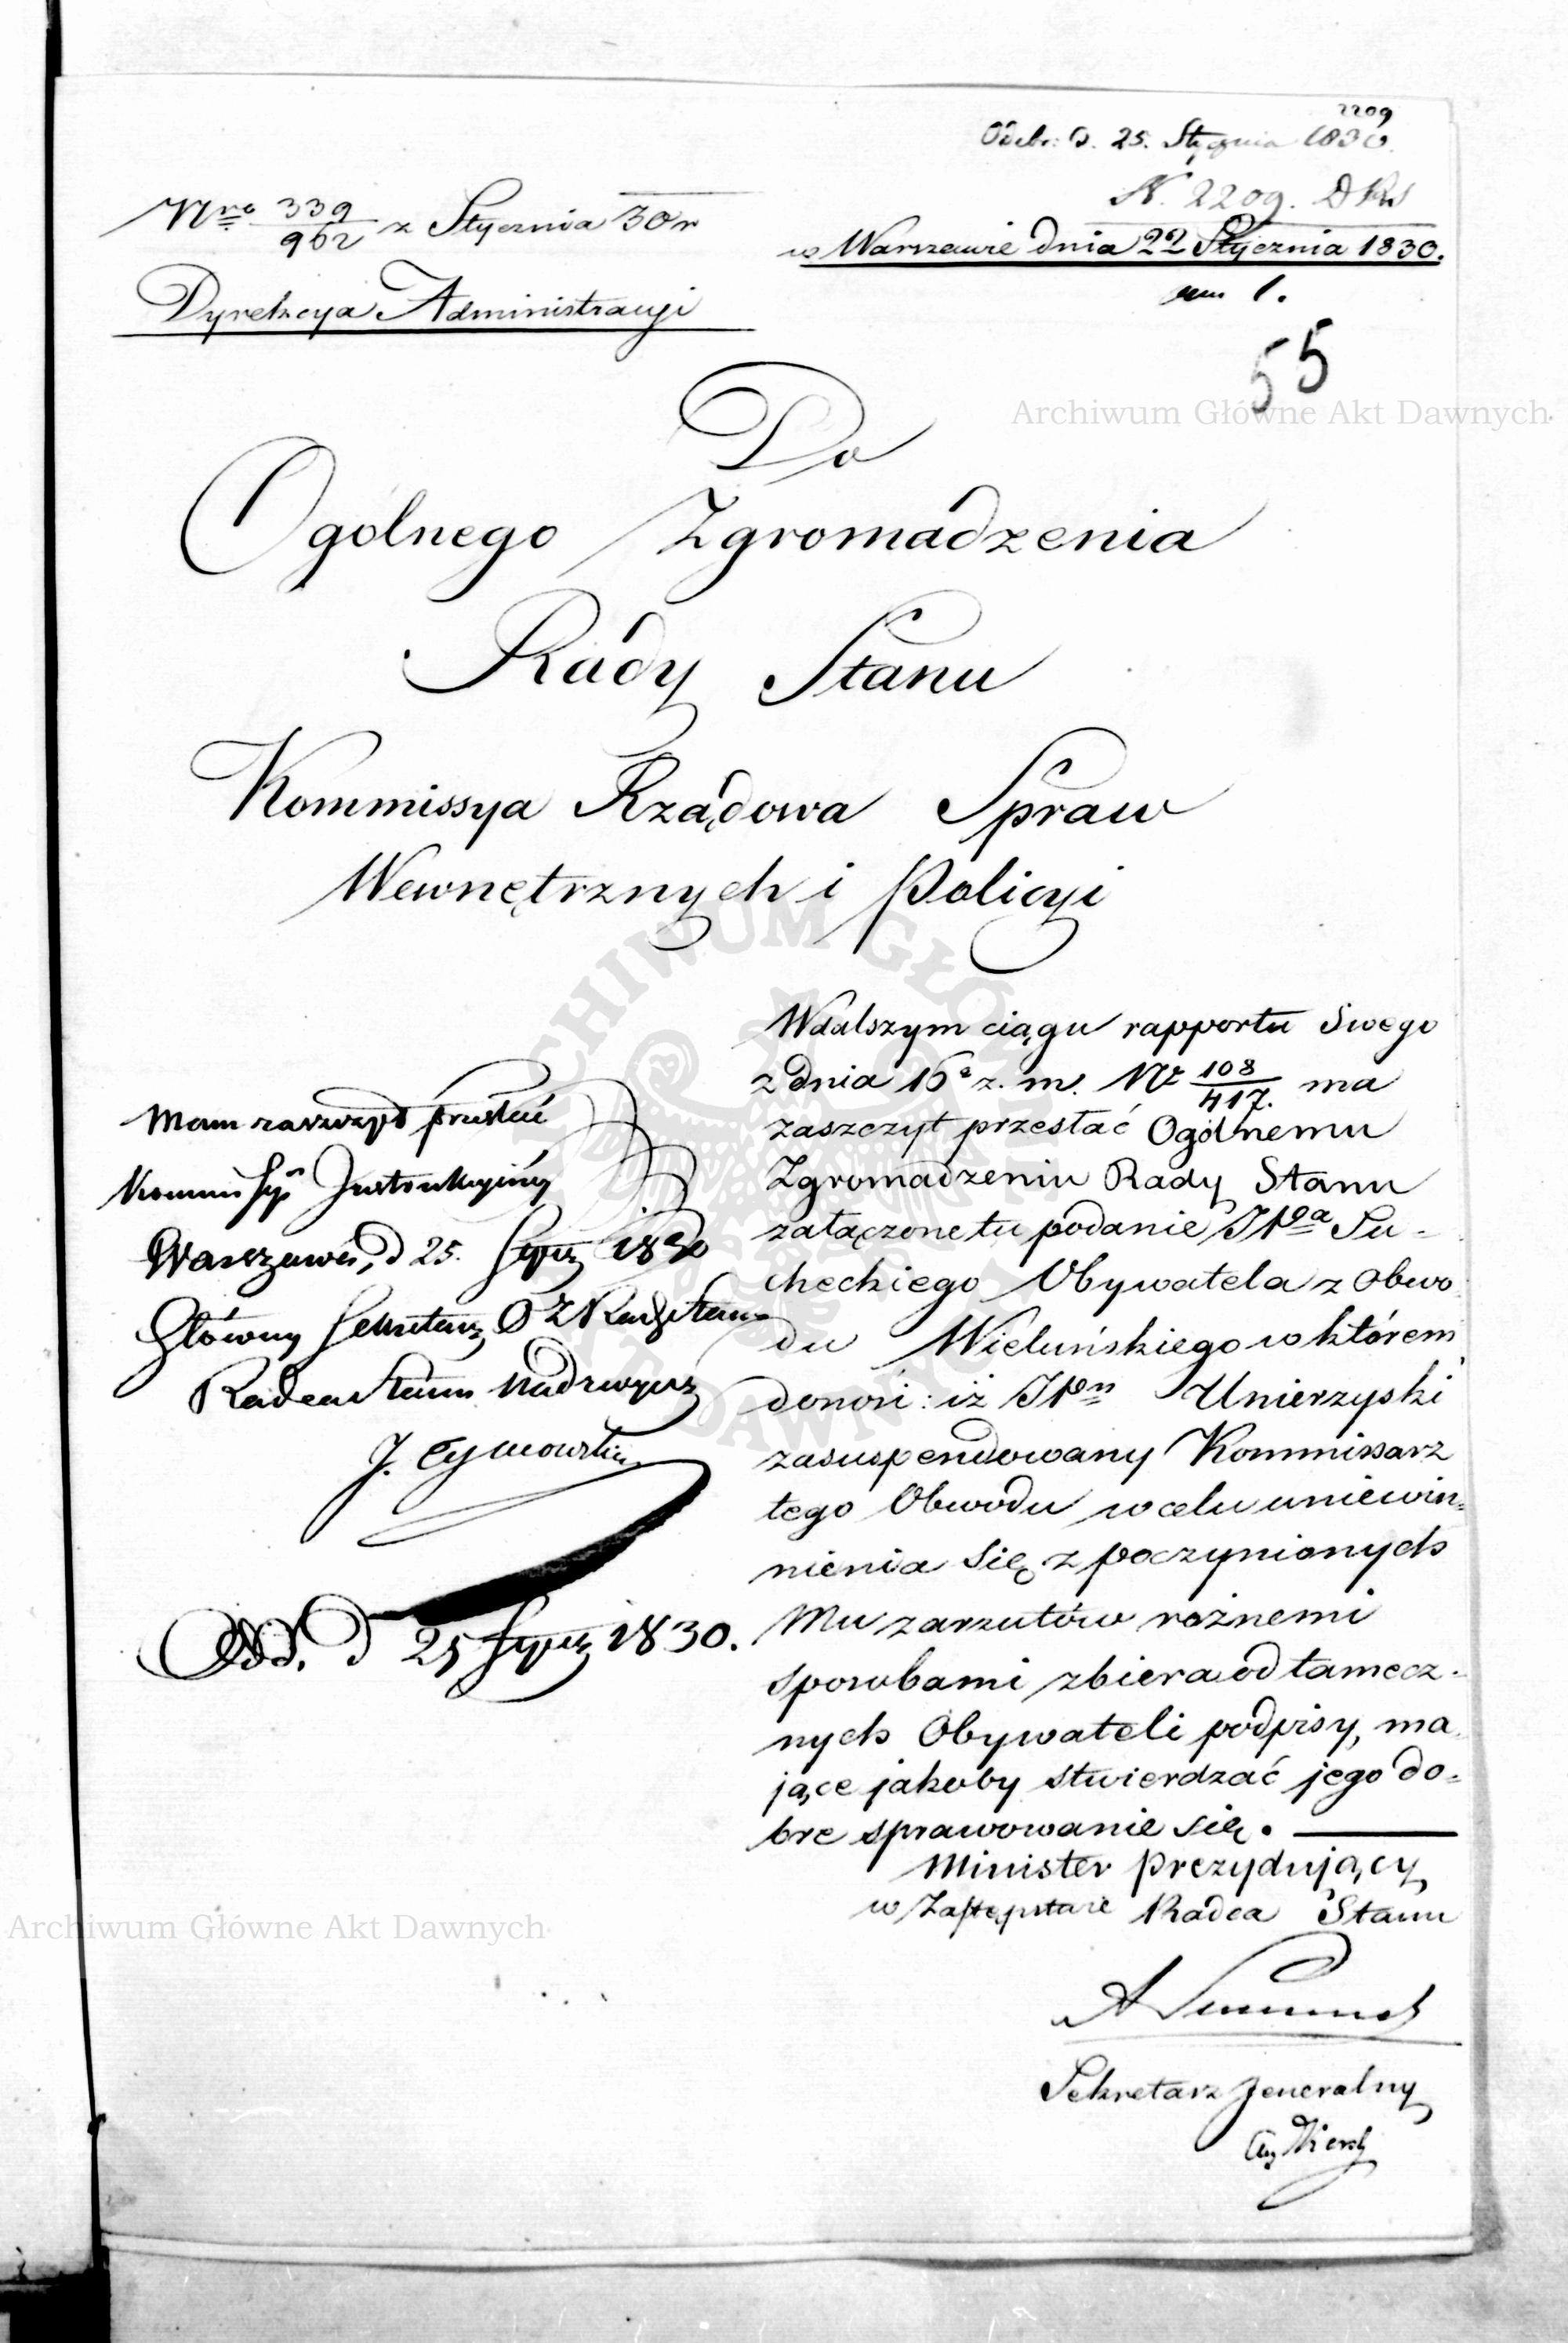 2209
Odebr: D. 25. Stycznia 1830.
N. 2209. DRS
Nro 339/962 z Stycznia 30 r
w Warszawie dnia 22 Stycznia 1830.
Dyrekcya Administracyi
1.
55
Archiwum Główne Akt Dawnych
Do
Ogólnego Zgromadzenia
Rady Stanu
Kommissya Rządowa Spraw
Wewnętrznych i Policyi
W dalszym ciągu rapportu swego
z dnia 16 z. m. Nr 108/417. ma
zaszczyt przesłać Ogólnemu
Zgromadzeniu Rady Stanu
załączone tu podanie JPa Su-
checkiego Obywatela z Obwo
du Wieluńskiego w którem
donosi: iż JPn Unierzyski
zasuspendowany Kommissarz
tego Obwodu w celu uniewin=
nienia się z poczynionych
Mu zarzutów rożnemi
sposobami zbiera od tamecz-
nych Obywateli podpisy, ma
jące jakoby stwierdzać jego do=
bre sprawowanie się.
Minister Prezydujący
w Zastępstwie Radca Stanu
Sekretarz Jeneralny
Mam zaszczyt przesłać
Kommissyi Instrukcyiney
Warszawa, d 25. Stycz 1830
Główny Sekretarz O Z Rady Stanu
Radca Stanu Nadzwycz
J.
Odd. D 25 Stycz 1830.
Archiwum Główne Akt Dawnych
ARCHIWUM GŁÓWNE AKT DAWNYCH